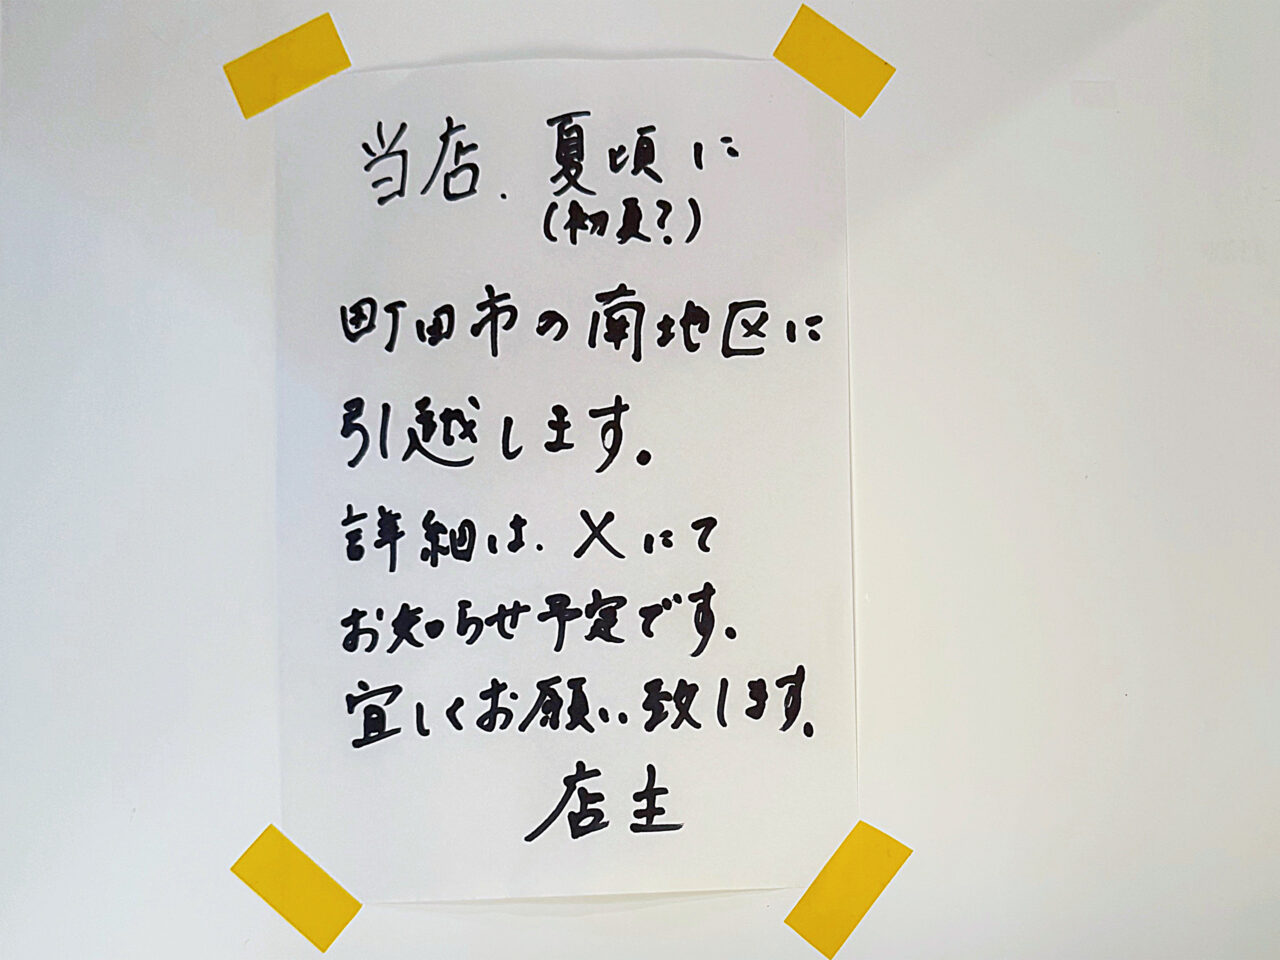 当店、夏頃に
(初夏?)
町田市の南地区に
引越します。
詳細は、Xにて
お知らせ予定です。
宜しくお願い致します。
店主